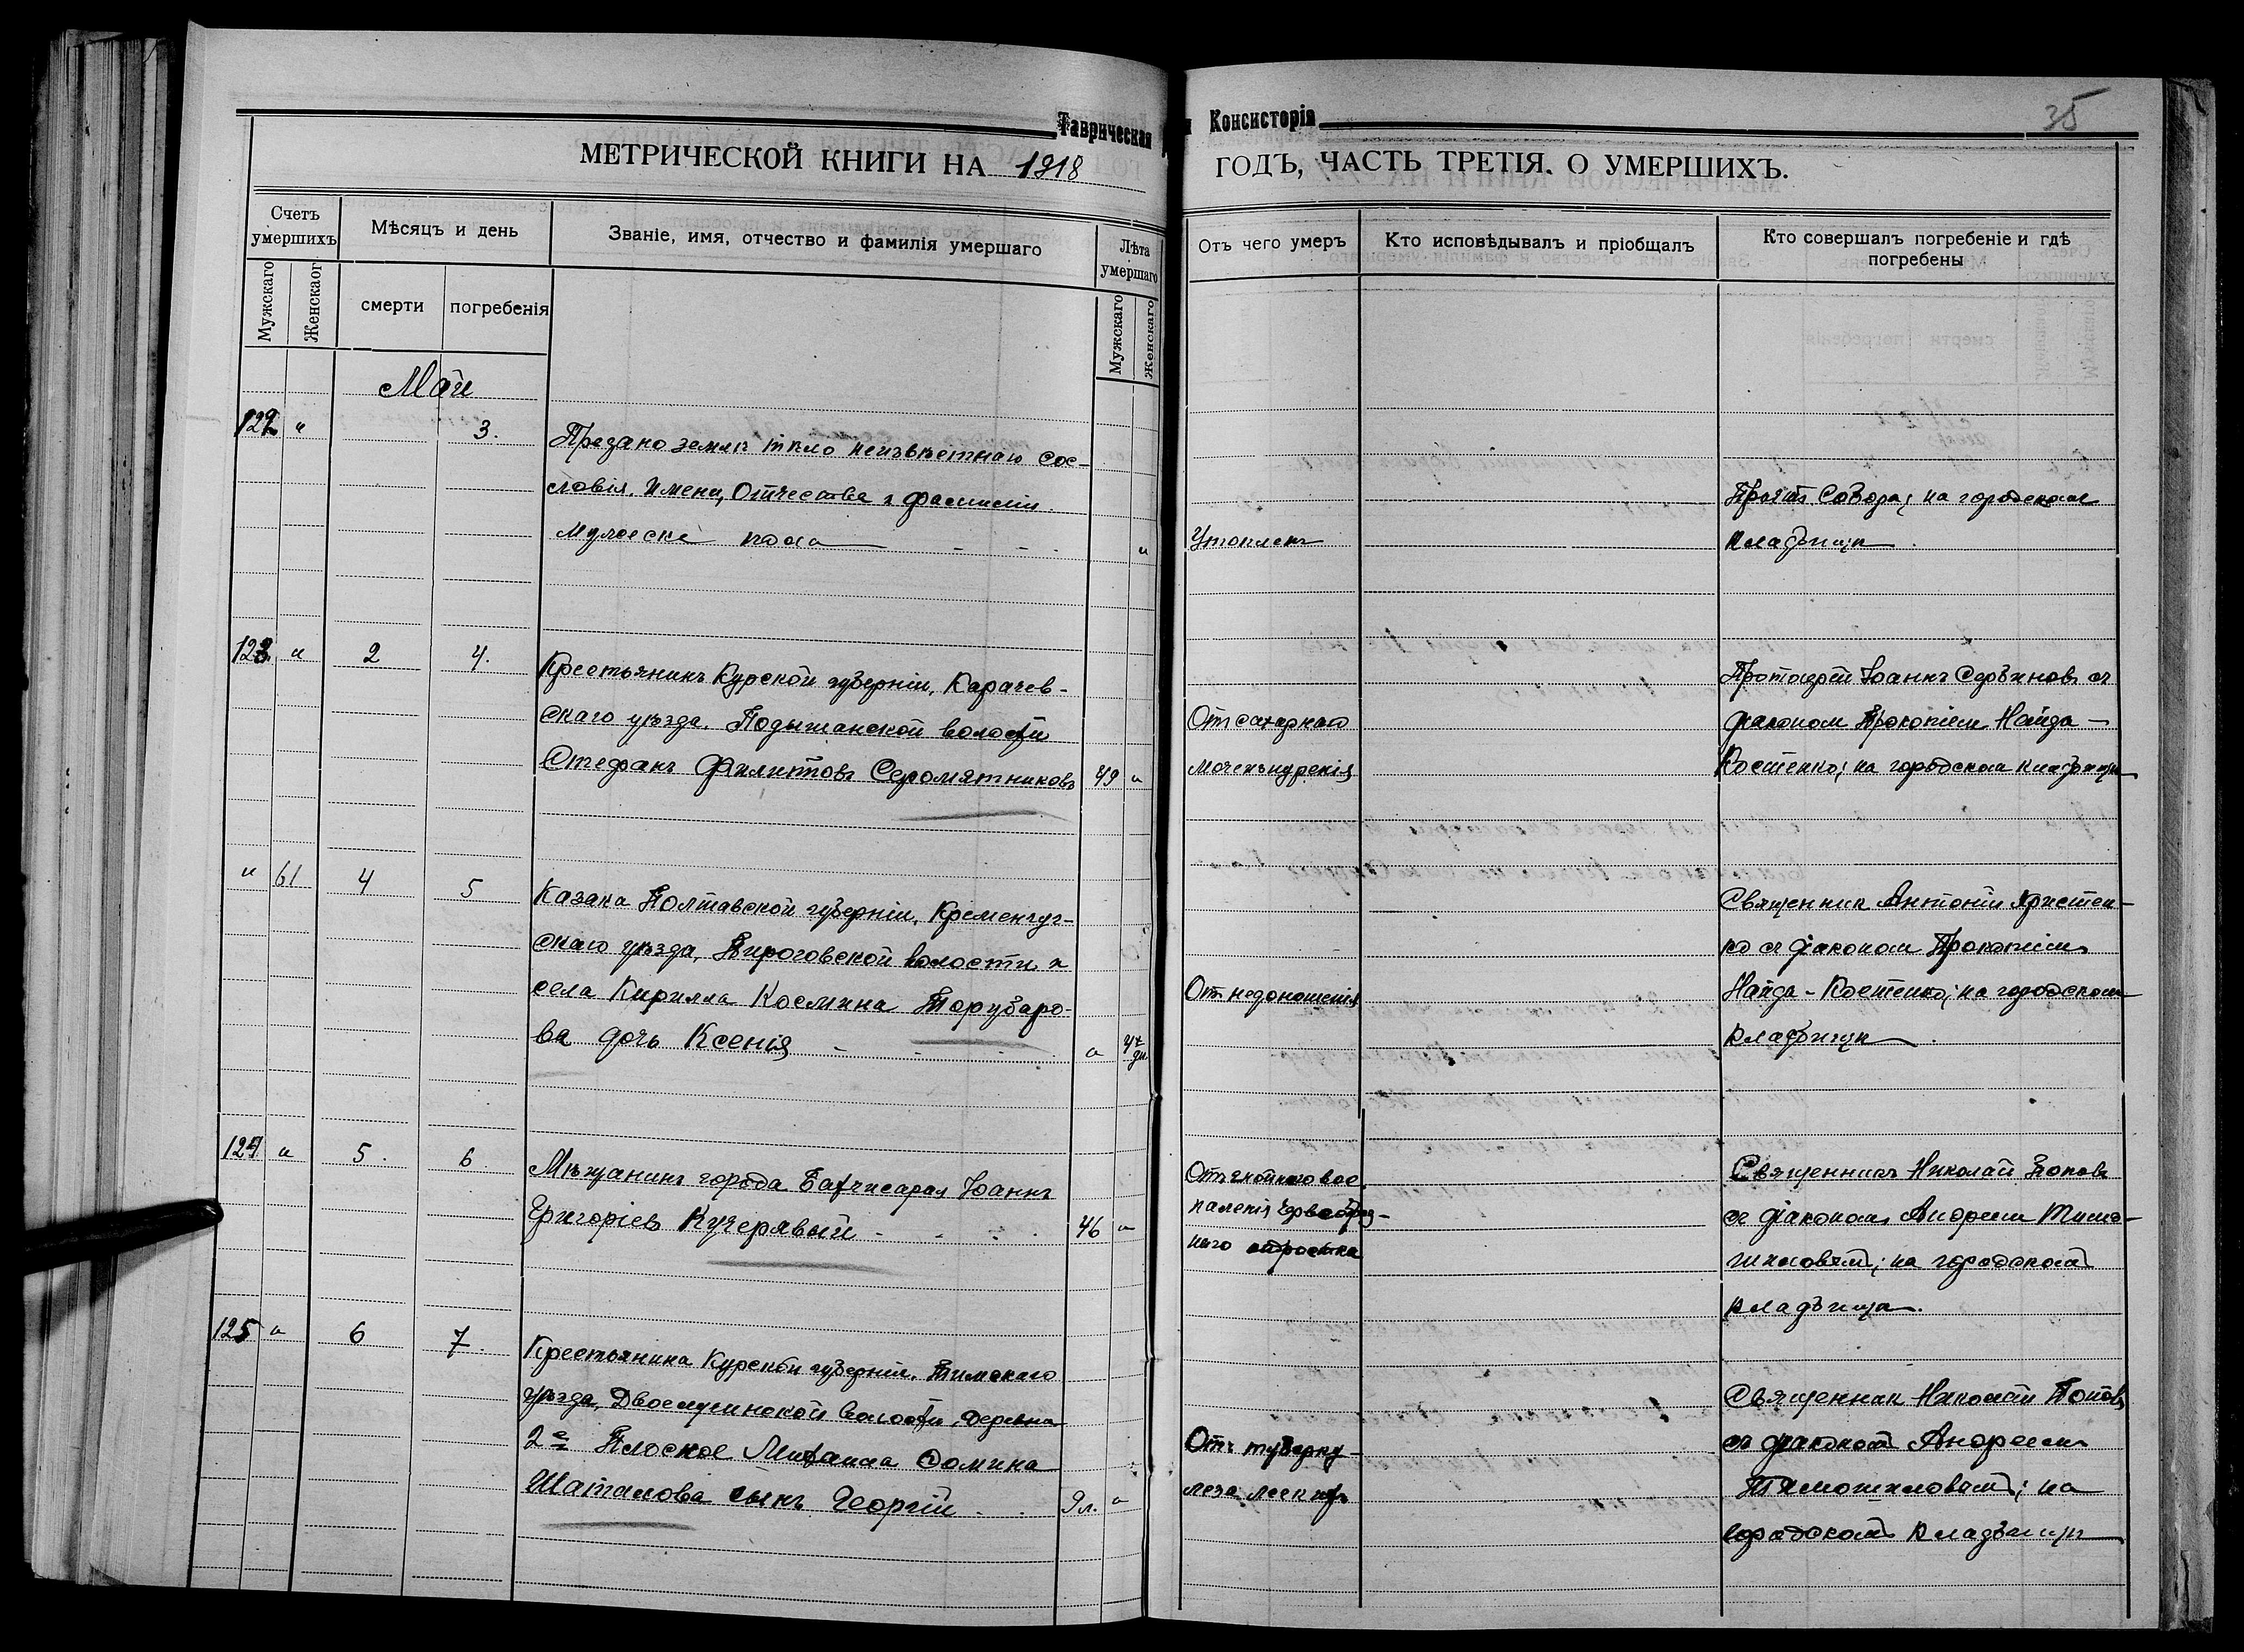 Таврическая Консисторія
35
МЕТРИЧЕСКОЙ КНИГИ НА 1918 ГОДЪ, ЧАСТЬ ТРЕТІЯ. О УМЕРШИХЪ.
Счетъ умершихъ
Мѣсяцъ и день
Званіе, имя, отчество и фамилія умершаго
Лѣта умершаго
Отъ чего умеръ
Кто исповѣдывалъ и пріобщалъ
Кто совершалъ погребеніе и гдѣ погребены
Мужскаго
Женскаог
смерти
погребенія
Мужскаго
Женскаго
Май
122 " 3.
Предано землѣ тѣло неизвѣстнаго сос-
ловія, Имени, Отчества и фамиліи
мужеске пола "
Утопленъ
Собора; на городскомъ
кладбищѣ.
123 " 2 4.
Крестьянинъ Курской губерніи, Карачев-
скаго уѣзда, волости
Стефанъ Филиппов Серомятниковъ 49 "
От сахарнаго
мочеизнуренія
Протоіерей Іоаннъ Сербиновъ съ
діакономъ Прокопіемъ Найда-
Костенко; на городскомъ кладбищѣ
" 61 4 5
Казака Полтавской губерніи, Кременчуг-
скаго уѣзда, волости и
села Кирилла Космина Торубаро-
ва дочь Ксенія " дн.
От недоношенія
Священник Антоній
ко съ діаконом Прокопіемъ
Найда-Костенко; на городскомъ
кладбищѣ.
124 " 5. 6.
Мѣщанинъ города Бахчисарая Іоаннъ
Григоріев Кучерявый 46 "
От гнойнаго вос
паленія червеобраз-
наго отростка
Священникъ Николай Поповъ
съ діакономъ Андреемъ Тимо-
шиловымъ; на городском
кладбищѣ.
125 " 6 7.
Крестьянина Курской губерніи, Тимскаго
уѣзда, Двоелучинской волости, деревни
2е Плоское Михаила Фомина
Шаталова сынъ Георгій 9л. "
Отъ туберку-
леза легкихъ
Священник Николай Попов
съ діаконом Андреемъ
Тимошиловым; на
городскомъ кладбищѣ